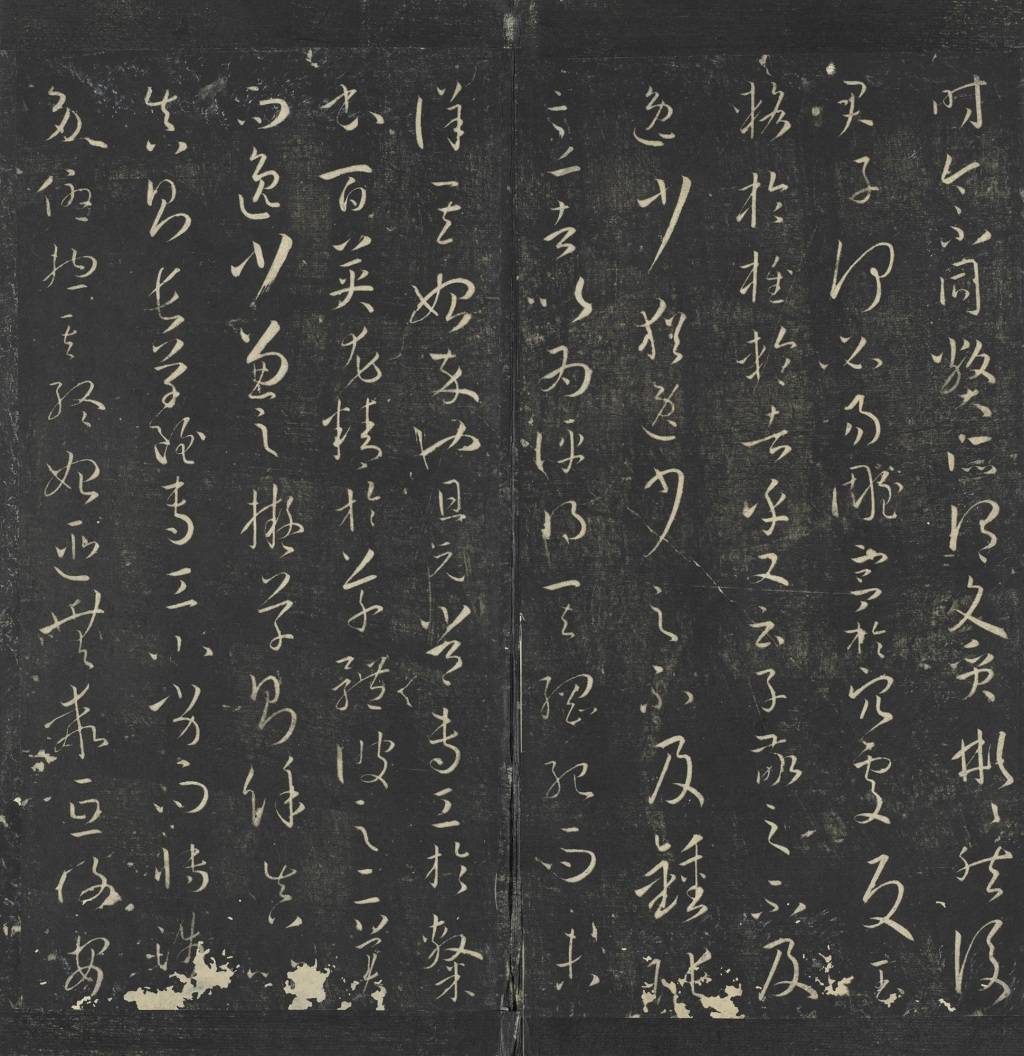 時今不同弊所謂文質彬彬然後
君子何必易雕宮於穴處反玉
輅於椎輪者乎又云子敬之不及
逸少猶逸少之不及鍾張
意者以為評得其綱紀而未
詳其始卒也且元常專工於隸
書百英尤精於草體彼之二美
而逸少兼之擬草則餘真
真則長草雖專工小劣而博涉
多優摠其終始匪無乖互謝安